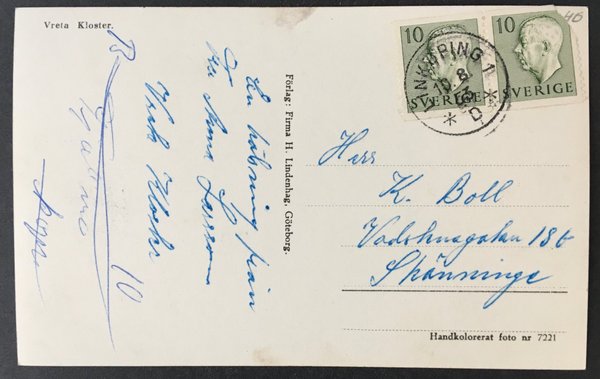 Vreta Kloster.
En hälsning från
Fru Anna Larsson
Vreta Kloster
Förlag: Firma H. Lindenhag, Göteborg.
10
SVERIGE
10
SVERIGE
40
LINKÖPING 1
10 8
53
* D *
Herr
K. Boll
Vadstenagatan 18 b
Skänninge
Handkolorerat foto nr 7221